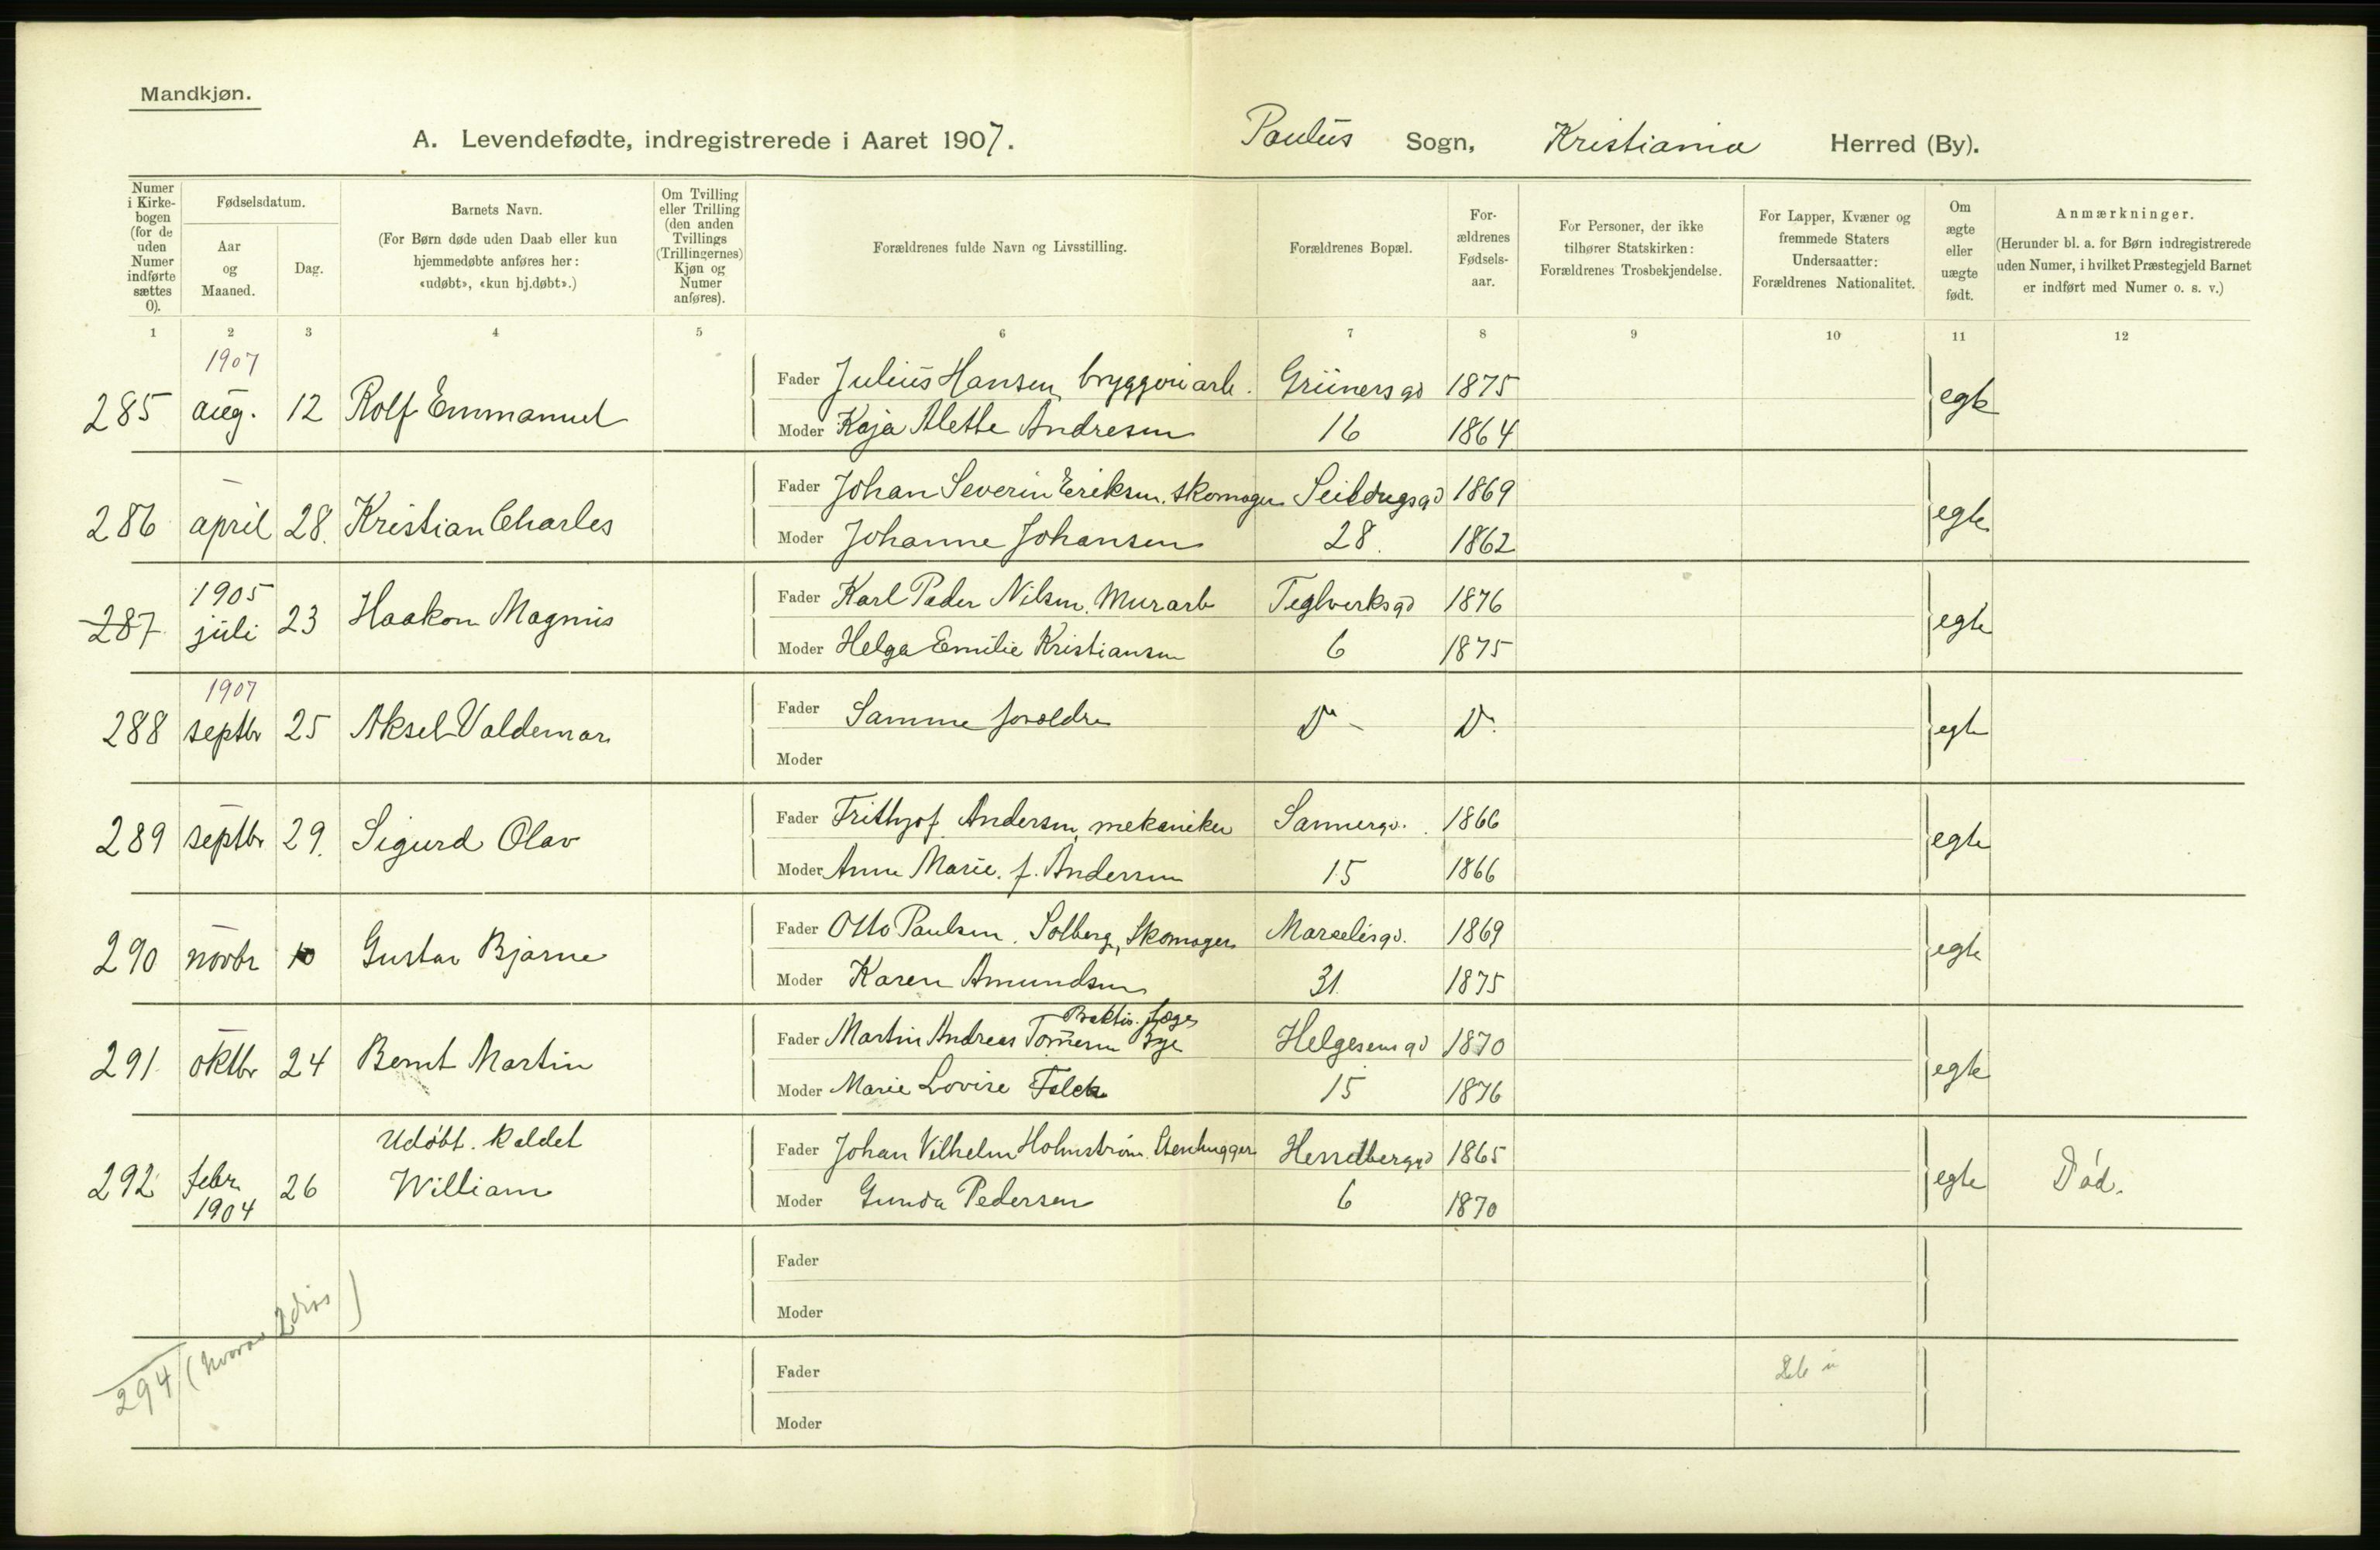 Mandkjøn.
A. Levendefødte, indregistrerede i Aaret 1907. Paulus Sogn, Kristiania Herred (By).
Numer i Kirkebogen (for de uden Numer indførte sættes 0).
Fødselsdatum.
Aar og Maaned.
Dag.
Barnets Navn.
(For Børn døde uden Daab eller kun hjemmedøbte anføres her: «udøbt», «kun hj.døbt».)
Om Tvilling eller Trilling (den anden Tvillings (Trillingernes) Kjøn og Numer anføres).
Forældrenes fulde Navn og Livsstilling.
Forældrenes Bopæl.
Forældrenes Fødselsaar.
For Personer, der ikke tilhører Statskirken: Forældrenes Trosbekjendelse.
For Lapper, Kvæner og fremmede Staters Undersaatter: Forældrenes Nationalitet.
Om ægte eller uægte født.
Anmærkninger.
(Herunder bl. a. for Børn indregistrerede uden Numer, i hvilket Præstegjeld Barnet er indført med Numer o. s. v.)
1 2 3 4 5 6 7 8 9 10 11 12
1907
285 aug. 12 Rolf Emmanuel Fader Julius Hansen, bryggeriarb. Grünersgd 1875 egte
Moder Kaja Alette Andresen 16 1864
286 april 28. Kristian Charles Fader Johan Severin Eriksen. Skomager Seildugsgd 1869 egte
Moder Johanne Johansen 28. 1862
1905
287 juli 23 Haakon Magnus Fader Karl Peder Nilsen. Murarb Teglverksgd 1876 egte
Moder Helga Emilie Kristiansen 6 1875
1907
288 septbr 25 Aksel Valdemar Fader Samme forældre Do - Do. egte
Moder
289 septbr 29. Sigurd Olav Fader Frithjof Andersen, mekaniker Sannergd. 1866 egte
Moder Anne Marie. f. Andersen 15 1866
290 novbr 10 Gustav Bjarne Fader Otto Paulsen. Solberg, Skomager Marselisgd. 1869 egte
Moder Karen Amundsen 31. 1875
Praktis. læge
291 oktbr 24 Bernt Martin Fader Martin Andreas Bye Helgesensgd 1870 egte
Moder Marie Lovise Falck 15 1876
Udøbt. kaldet
292 febr. 1904 26 William Fader Johan Vilhelm Holmstrøm. Stenhugger Hesselbergsgd 1865 egte Død.
Moder Gunda Pedersen 6 1870
Fader
Moder
294 (hvorav 2 )
Fader
Moder